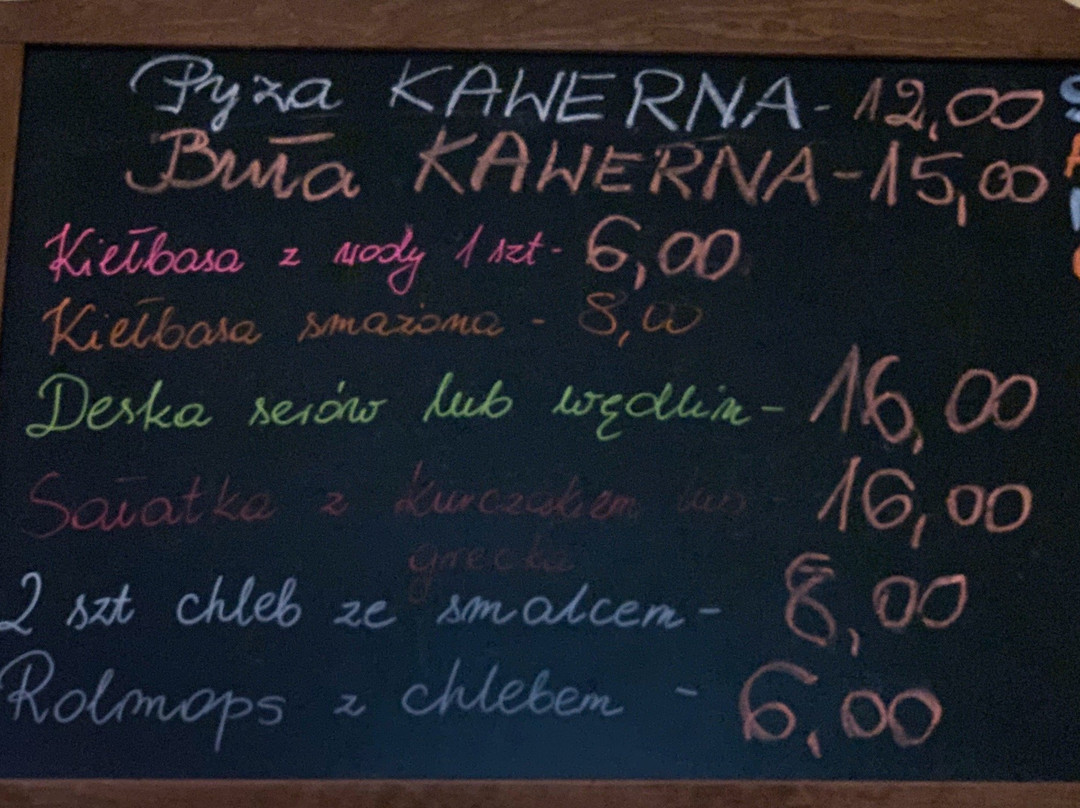 Pyza KAWERNA - 12,00
Buła KAWERNA - 15,00
Kiełbasa z wody 1 szt - 6,00
Kiełbasa smażona - 8,00
Deska serów lub wędlin - 16,00
Sałatka z kurczakiem lub - 16,00
grecka
2 szt chleb ze smalcem - 8,00
Rolmops z chlebem - 6,00